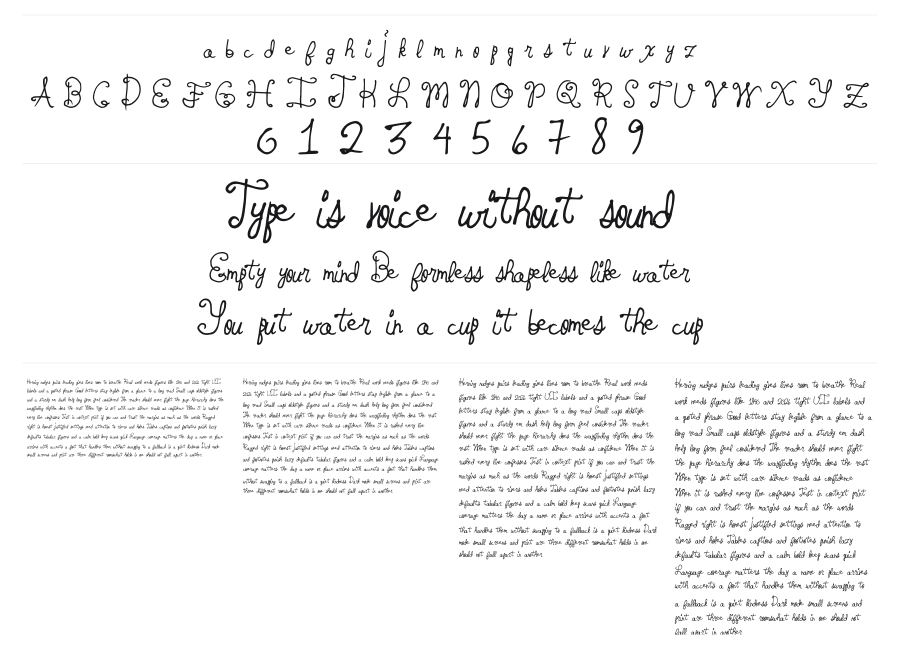 a b c d e f g h i j k l m n o p q r s t u v w x y z
A B C D E F G H I J K L M N O P Q R S T U V W X Y Z
0 1 2 3 4 5 6 7 8 9
Type is voice without sound
Empty your mind Be formless shapeless like water
You put water in a cup it becomes the cup
Kerning nudges pairs leading gives lines room to breathe Real work needs figures like and 2026 tight UI
labels and a quoted phrase Good letters stay legible from a glance to a long read Small caps oldstyle figures
and a sturdy em dash help long form feel considered The reader should never fight the page hierarchy does the
wayfinding rhythm does the rest When type is set with care silence reads as confidence When it is rushed
every line confesses Test in context print if you can and trust the margins as much as the words Ragged
right is honest justified settings need attention to rivers and holes Tables captions and footnotes punish lazy
defaults tabular figures and a calm bold keep scans quick Language coverage matters the day a name or place
arrives with accents a font that handles them without swapping to a fallback is a quiet kindness Dark mode
small screens and print are three different rooms what holds in one should not fall apart in another
Kerning nudges pairs leading gives lines room to breathe Real work needs figures like and
2026 tight UI labels and a quoted phrase Good letters stay legible from a glance to a
long read Small caps oldstyle figures and a sturdy em dash help long form feel considered
The reader should never fight the page hierarchy does the wayfinding rhythm does the rest
When type is set with care silence reads as confidence When it is rushed every line
confesses Test in context print if you can and trust the margins as much as the words
Ragged right is honest justified settings need attention to rivers and holes Tables captions
and footnotes punish lazy defaults tabular figures and a calm bold keep scans quick Language
coverage matters the day a name or place arrives with accents a font that handles them
without swapping to a fallback is a quiet kindness Dark mode small screens and print are
three different rooms what holds in one should not fall apart in another
Kerning nudges pairs leading gives lines room to breathe Real work needs
figures like and 2026 tight UI labels and a quoted phrase Good
letters stay legible from a glance to a long read Small caps oldstyle
figures and a sturdy em dash help long form feel considered The reader
should never fight the page hierarchy does the wayfinding rhythm does the
rest When type is set with care silence reads as confidence When it is
rushed every line confesses Test in context print if you can and trust the
margins as much as the words Ragged right is honest justified settings
need attention to rivers and holes Tables captions and footnotes punish lazy
defaults tabular figures and a calm bold keep scans quick Language
coverage matters the day a name or place arrives with accents a font
that handles them without swapping to a fallback is a quiet kindness Dark
mode small screens and print are three different rooms what holds in one
should not fall apart in another
Kerning nudges pairs leading gives lines room to breathe Real
work needs figures like and 2026 tight UI labels and
a quoted phrase Good letters stay legible from a glance to a
long read Small caps oldstyle figures and a sturdy em dash
help long form feel considered The reader should never fight
the page hierarchy does the wayfinding rhythm does the rest
When type is set with care silence reads as confidence
When it is rushed every line confesses Test in context print
if you can and trust the margins as much as the words
Ragged right is honest justified settings need attention to
rivers and holes Tables captions and footnotes punish lazy
defaults tabular figures and a calm bold keep scans quick
Language coverage matters the day a name or place arrives
with accents a font that handles them without swapping to
a fallback is a quiet kindness Dark mode small screens and
print are three different rooms what holds in one should not
fall apart in another